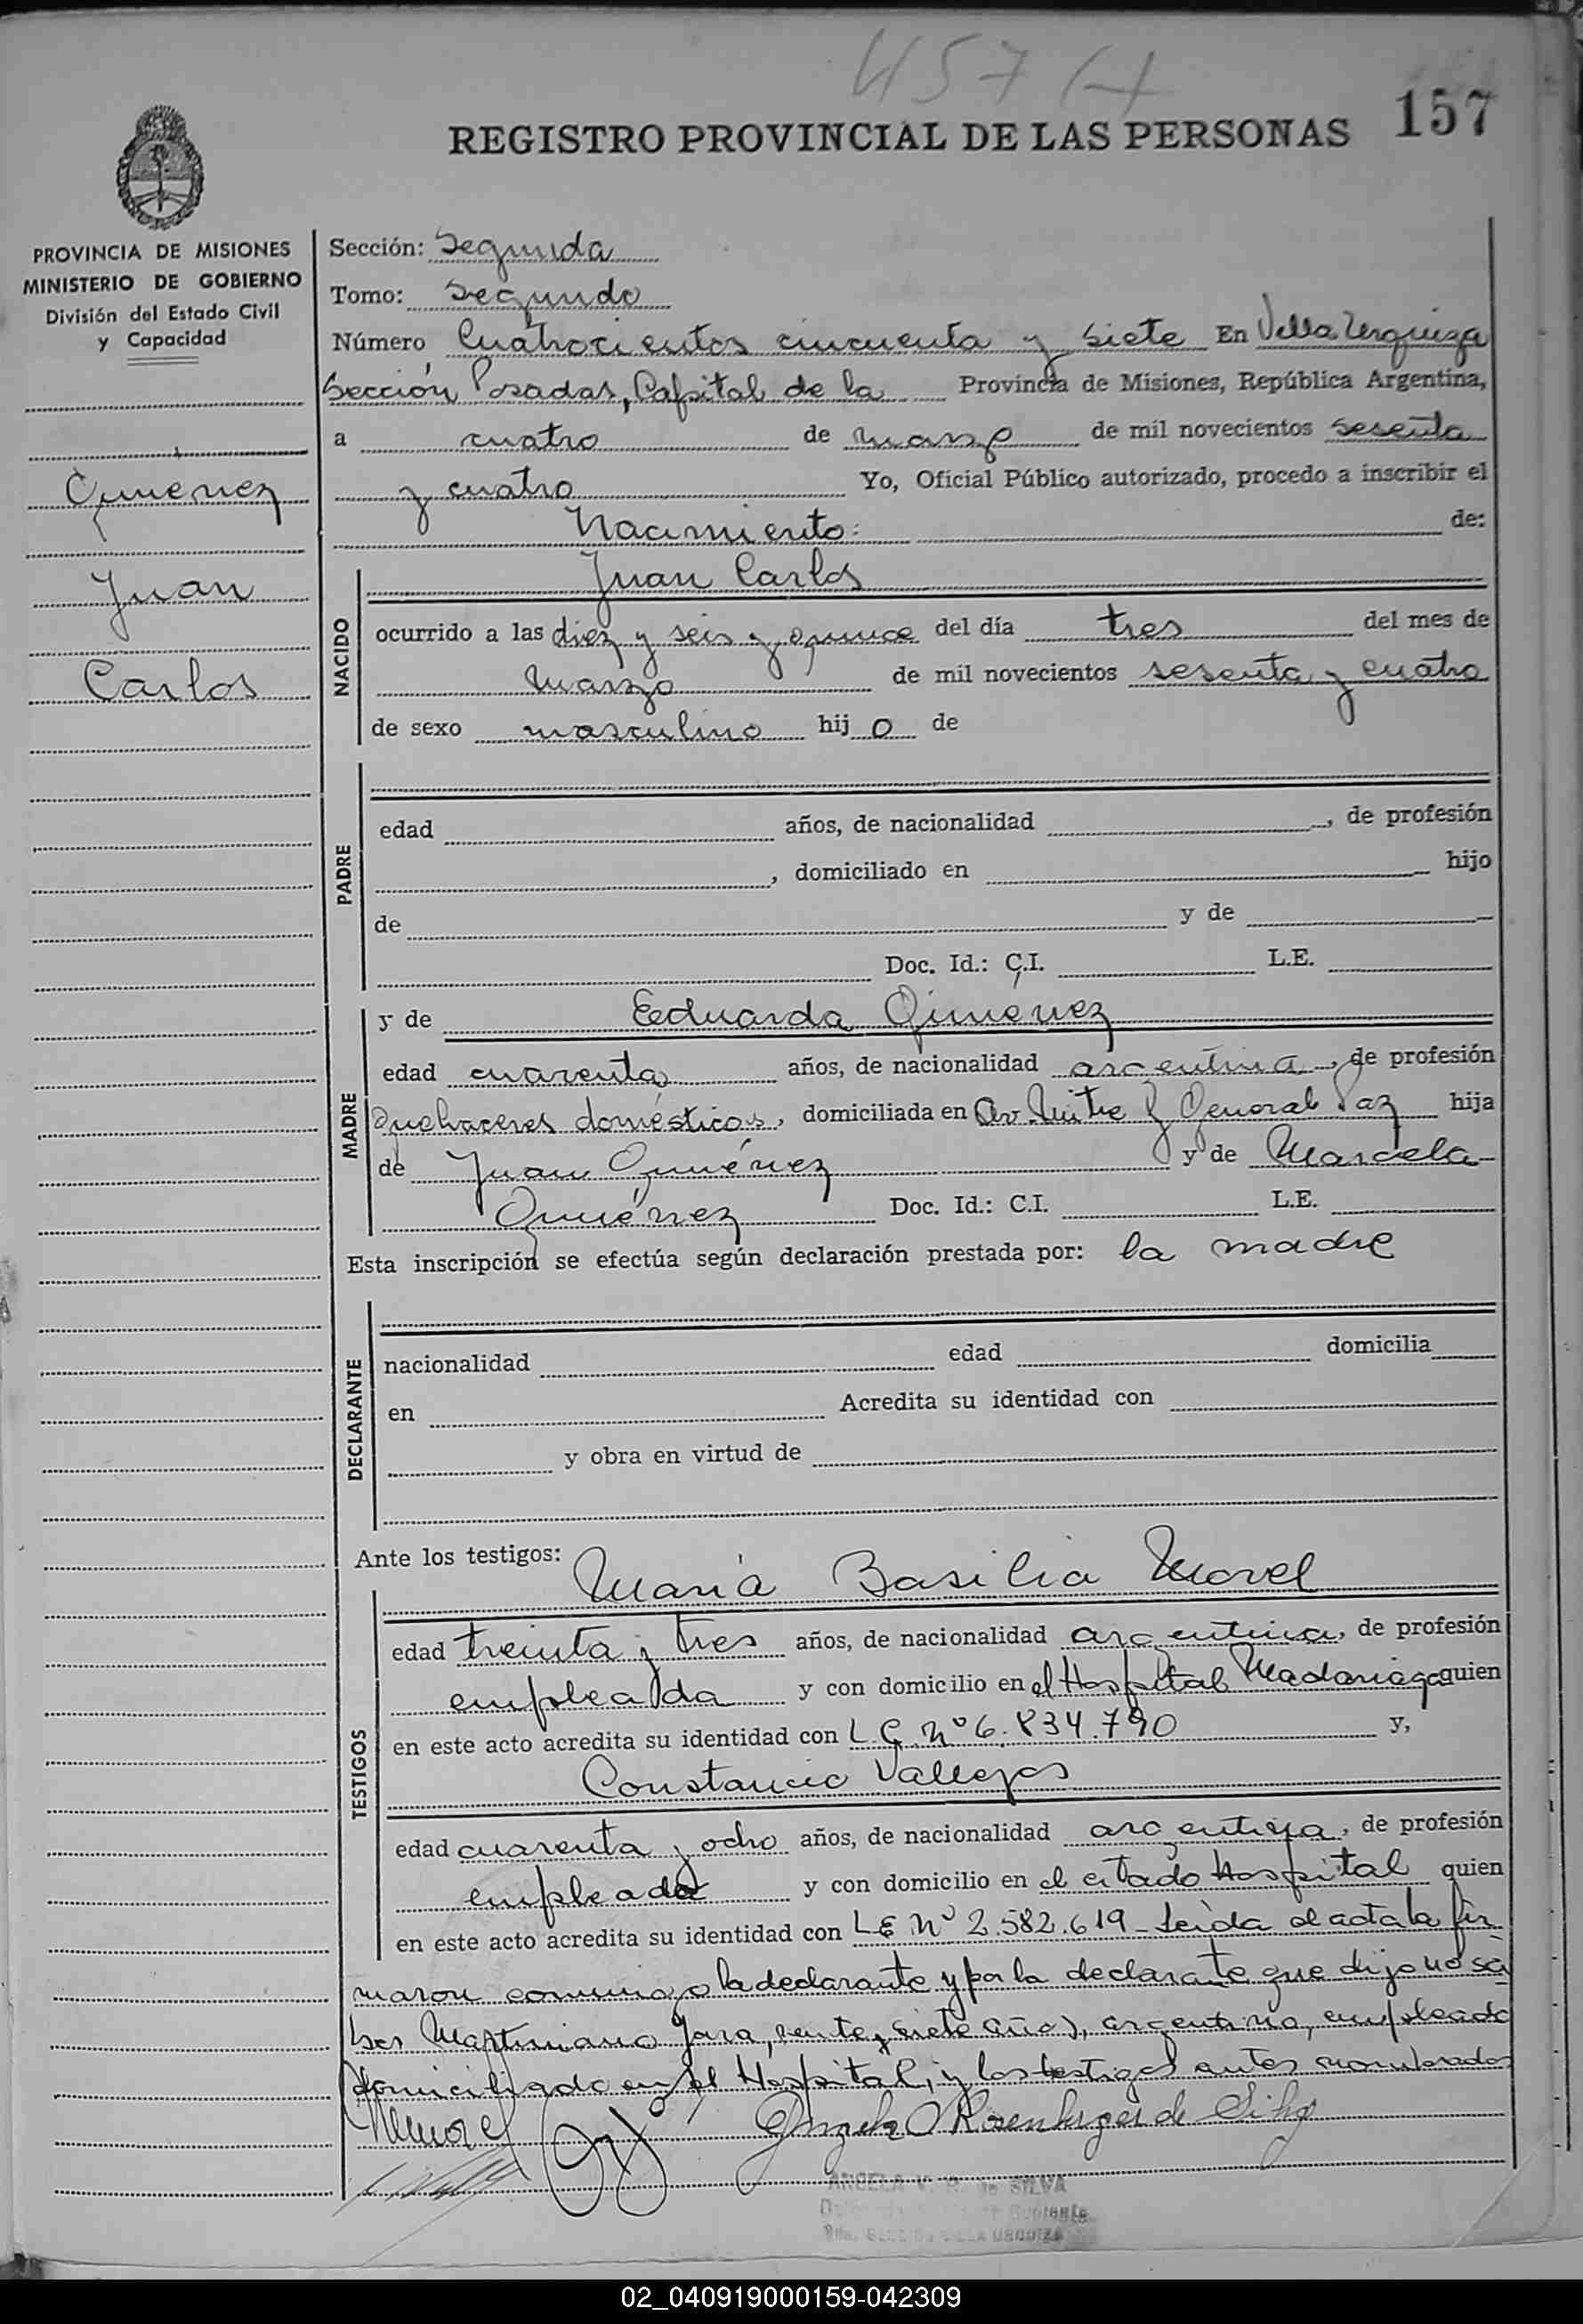 457
157
REGISTRO PROVINCIAL DE LAS PERSONAS
PROVINCIA DE MISIONES
MINISTERIO DE GOBIERNO
División del Estado Civil
y Capacidad
Gimenez
Juan
Carlos
Sección: Segunda
Tomo: Segundo
Número Cuatrocientos cincuenta y siete En Villa Urquiza
Sección Posadas, Capital de la Provincia de Misiones, República Argentina,
a cuatro de marzo de mil novecientos sesenta
y cuatro Yo, Oficial Público autorizado, procedo a inscribir el
Nacimiento: de:
NACIDO
Juan Carlos
ocurrido a las diez y seis y quince del día tres del mes de
marzo de mil novecientos sesenta y cuatro
de sexo masculino hij o de
PADRE
edad años, de nacionalidad , de profesión
, domiciliado en hijo
de y de
Doc. Id.: C.I. L.E.
MADRE
y de Eduarda Gimenez
edad cuarenta años, de nacionalidad argentina, de profesión
Quehaceres domésticos, domiciliada en Av. Mitre y General Paz hija
de Juan Giménez y de Marcela
Giménez Doc. Id.: C.I. L.E.
Esta inscripción se efectúa según declaración prestada por: la madre
DECLARANTE
nacionalidad edad domicilia
en Acredita su identidad con
y obra en virtud de
Ante los testigos: María Basilia Morel
TESTIGOS
edad treinta y tres años, de nacionalidad argentina, de profesión
empleada y con domicilio en el Hospital Madariaga quien
en este acto acredita su identidad con L.C. Nº 6.834.790 y,
Constancio Vallejos
edad cuarenta y ocho años, de nacionalidad argentina, de profesión
empleado y con domicilio en el citado Hospital quien
en este acto acredita su identidad con LE Nº 2.582.619 - Leída el acta la fir
maron conmigo la declarante y por la declarante que dijo no sa
ber Martiniano Jara, veinte y siete años, argentino, empleado
domiciliado en el Hospital, y los testigos antes nombrados
Morel
de Silva
ANGELA V. R. de SILVA
Suplente
VILLA URQUIZA
02_040919000159-042309